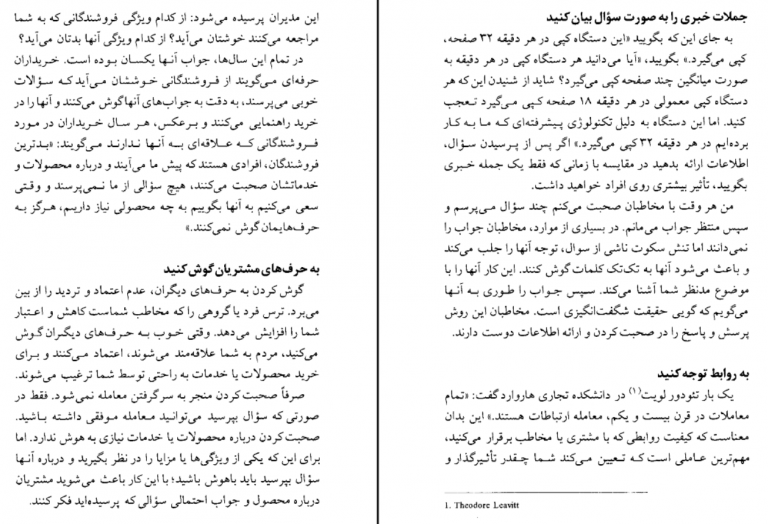 جملات خبری را به صورت سؤال بیان کنید
به جای این که بگویید «این دستگاه کپی در هر دقیقه ۳۲ صفحه،
کپی می‌گیرد.» بگویید، «آیا می‌دانید هر دستگاه کپی در هر دقیقه به
صورت میانگین چند صفحه کپی می‌گیرد؟ شاید از شنیدن این که هر
دستگاه کپی معمولی در هر دقیقه ۱۸ صفحه کپی می‌گیرد تعجب
کنید. اما این دستگاه به دلیل تکنولوژی پیشرفته‌ای که ما به کار
برده‌ایم در هر دقیقه ۳۲ کپی می‌گیرد.» اگر پس از پرسیدن سؤال،
اطلاعات ارائه بدهید در مقایسه با زمانی که فقط یک جمله خبری
بگویید، تأثیر بیشتری روی افراد خواهید داشت.
من هر وقت با مخاطبان صحبت می‌کنم چند سؤال می‌پرسم و
سپس منتظر جواب می‌مانم. در بسیاری از موارد، مخاطبان جواب را
نمی‌دانند اما تنش سکوت ناشی از سوال، توجه آنها را جلب می‌کند
و باعث می‌شود آنها به تک‌تک کلمات گوش کنند. این کار آنها را با
موضوع مدنظر شما آشنا می‌کند. سپس جواب را طوری به آنها
می‌گویم که گویی حقیقت شگفت‌انگیزی است. مخاطبان این روش
پرسش و پاسخ را در صحبت کردن و ارائه اطلاعات دوست دارند.
به روابط توجه کنید
یک بار تئودور لویت(۱) در دانشکده تجاری هاروارد گفت: «تمام
معاملات در قرن بیست و یکم، معامله ارتباطات هستند.» این بدان
معناست که کیفیت روابطی که با مشتری یا مخاطب برقرار می‌کنید،
مهم‌ترین عاملی است که تعیین می‌کند شما چقدر تأثیرگذار و
1. Theodore Leavitt
این مدیران پرسیده می‌شود: از کدام ویژگی فروشندگانی که به شما
مراجعه می‌کنند خوشتان می‌آید؟ از کدام ویژگی آنها بدتان می‌آید؟
در تمام این سال‌ها، جواب آنها یکسان بوده است. خریداران
حرفه‌ای می‌گویند از فروشندگانی خوششان می‌آید که سؤالات
خوبی می‌پرسند، به دقت به جواب‌های آنهاگوش می‌کنند و آنها را در
خرید راهنمایی می‌کنند و برعکس، هر سال خریداران در مورد
فروشندگانی که علاقه‌ای به آنها ندارند می‌گویند: «بدترین
فروشندگان، افرادی هستند که پیش ما می‌آیند و درباره محصولات و
خدماتشان صحبت می‌کنند، هیچ سؤالی از ما نمی‌پرسند و وقتی
سعی می‌کنیم به آنها بگوییم به چه محصولی نیاز داریم، هرگز به
حرف‌هایمان گوش نمی‌کنند.»
به حرف‌های مشتریان گوش کنید
گوش کردن به حرف‌های دیگران، عدم اعتماد و تردید را از بین
می‌برد. ترس فرد یا گروهی را که مخاطب شماست کاهش و اعتبار
شما را افزایش می‌دهد. وقتی خوب به حرف‌های دیگران گوش
می‌کنید، مردم به شما علاقه‌مند می‌شوند، اعتماد می‌کنند و برای
خرید محصولات یا خدمات به راحتی توسط شما ترغیب می‌شوند.
صرفاً صحبت کردن منجر به سرگرفتن معامله نمی‌شود. فقط در
صورتی که سؤال بپرسید می‌توانید معامله موفقی داشته باشید.
صحبت کردن درباره محصولات یا خدمات نیازی به هوش ندارد. اما
برای این که یکی از ویژگی‌ها یا مزایا را در نظر بگیرید و درباره آنها
سؤال بپرسید باید باهوش باشید؛ با این کار باعث می‌شوید مشتریان
درباره محصول و جواب احتمالی سؤالی که پرسیده‌اید فکر کنند.